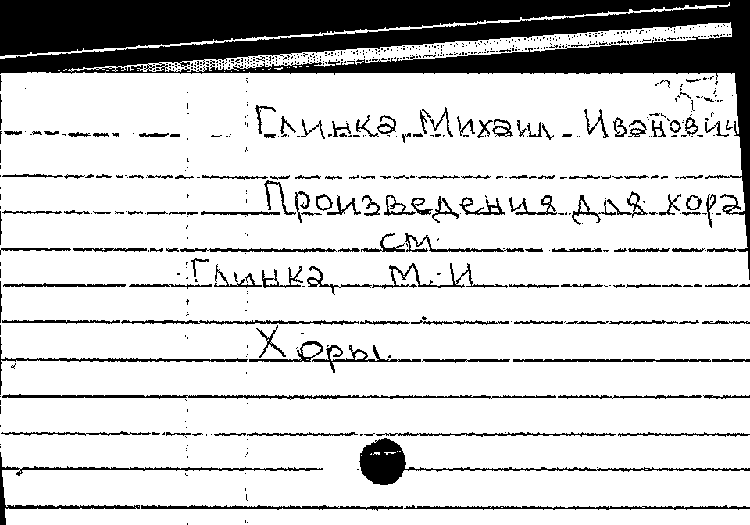 Глинка, Михаил Иванович
Произведения для хора
см.
Глинка, М. И
Хоры.